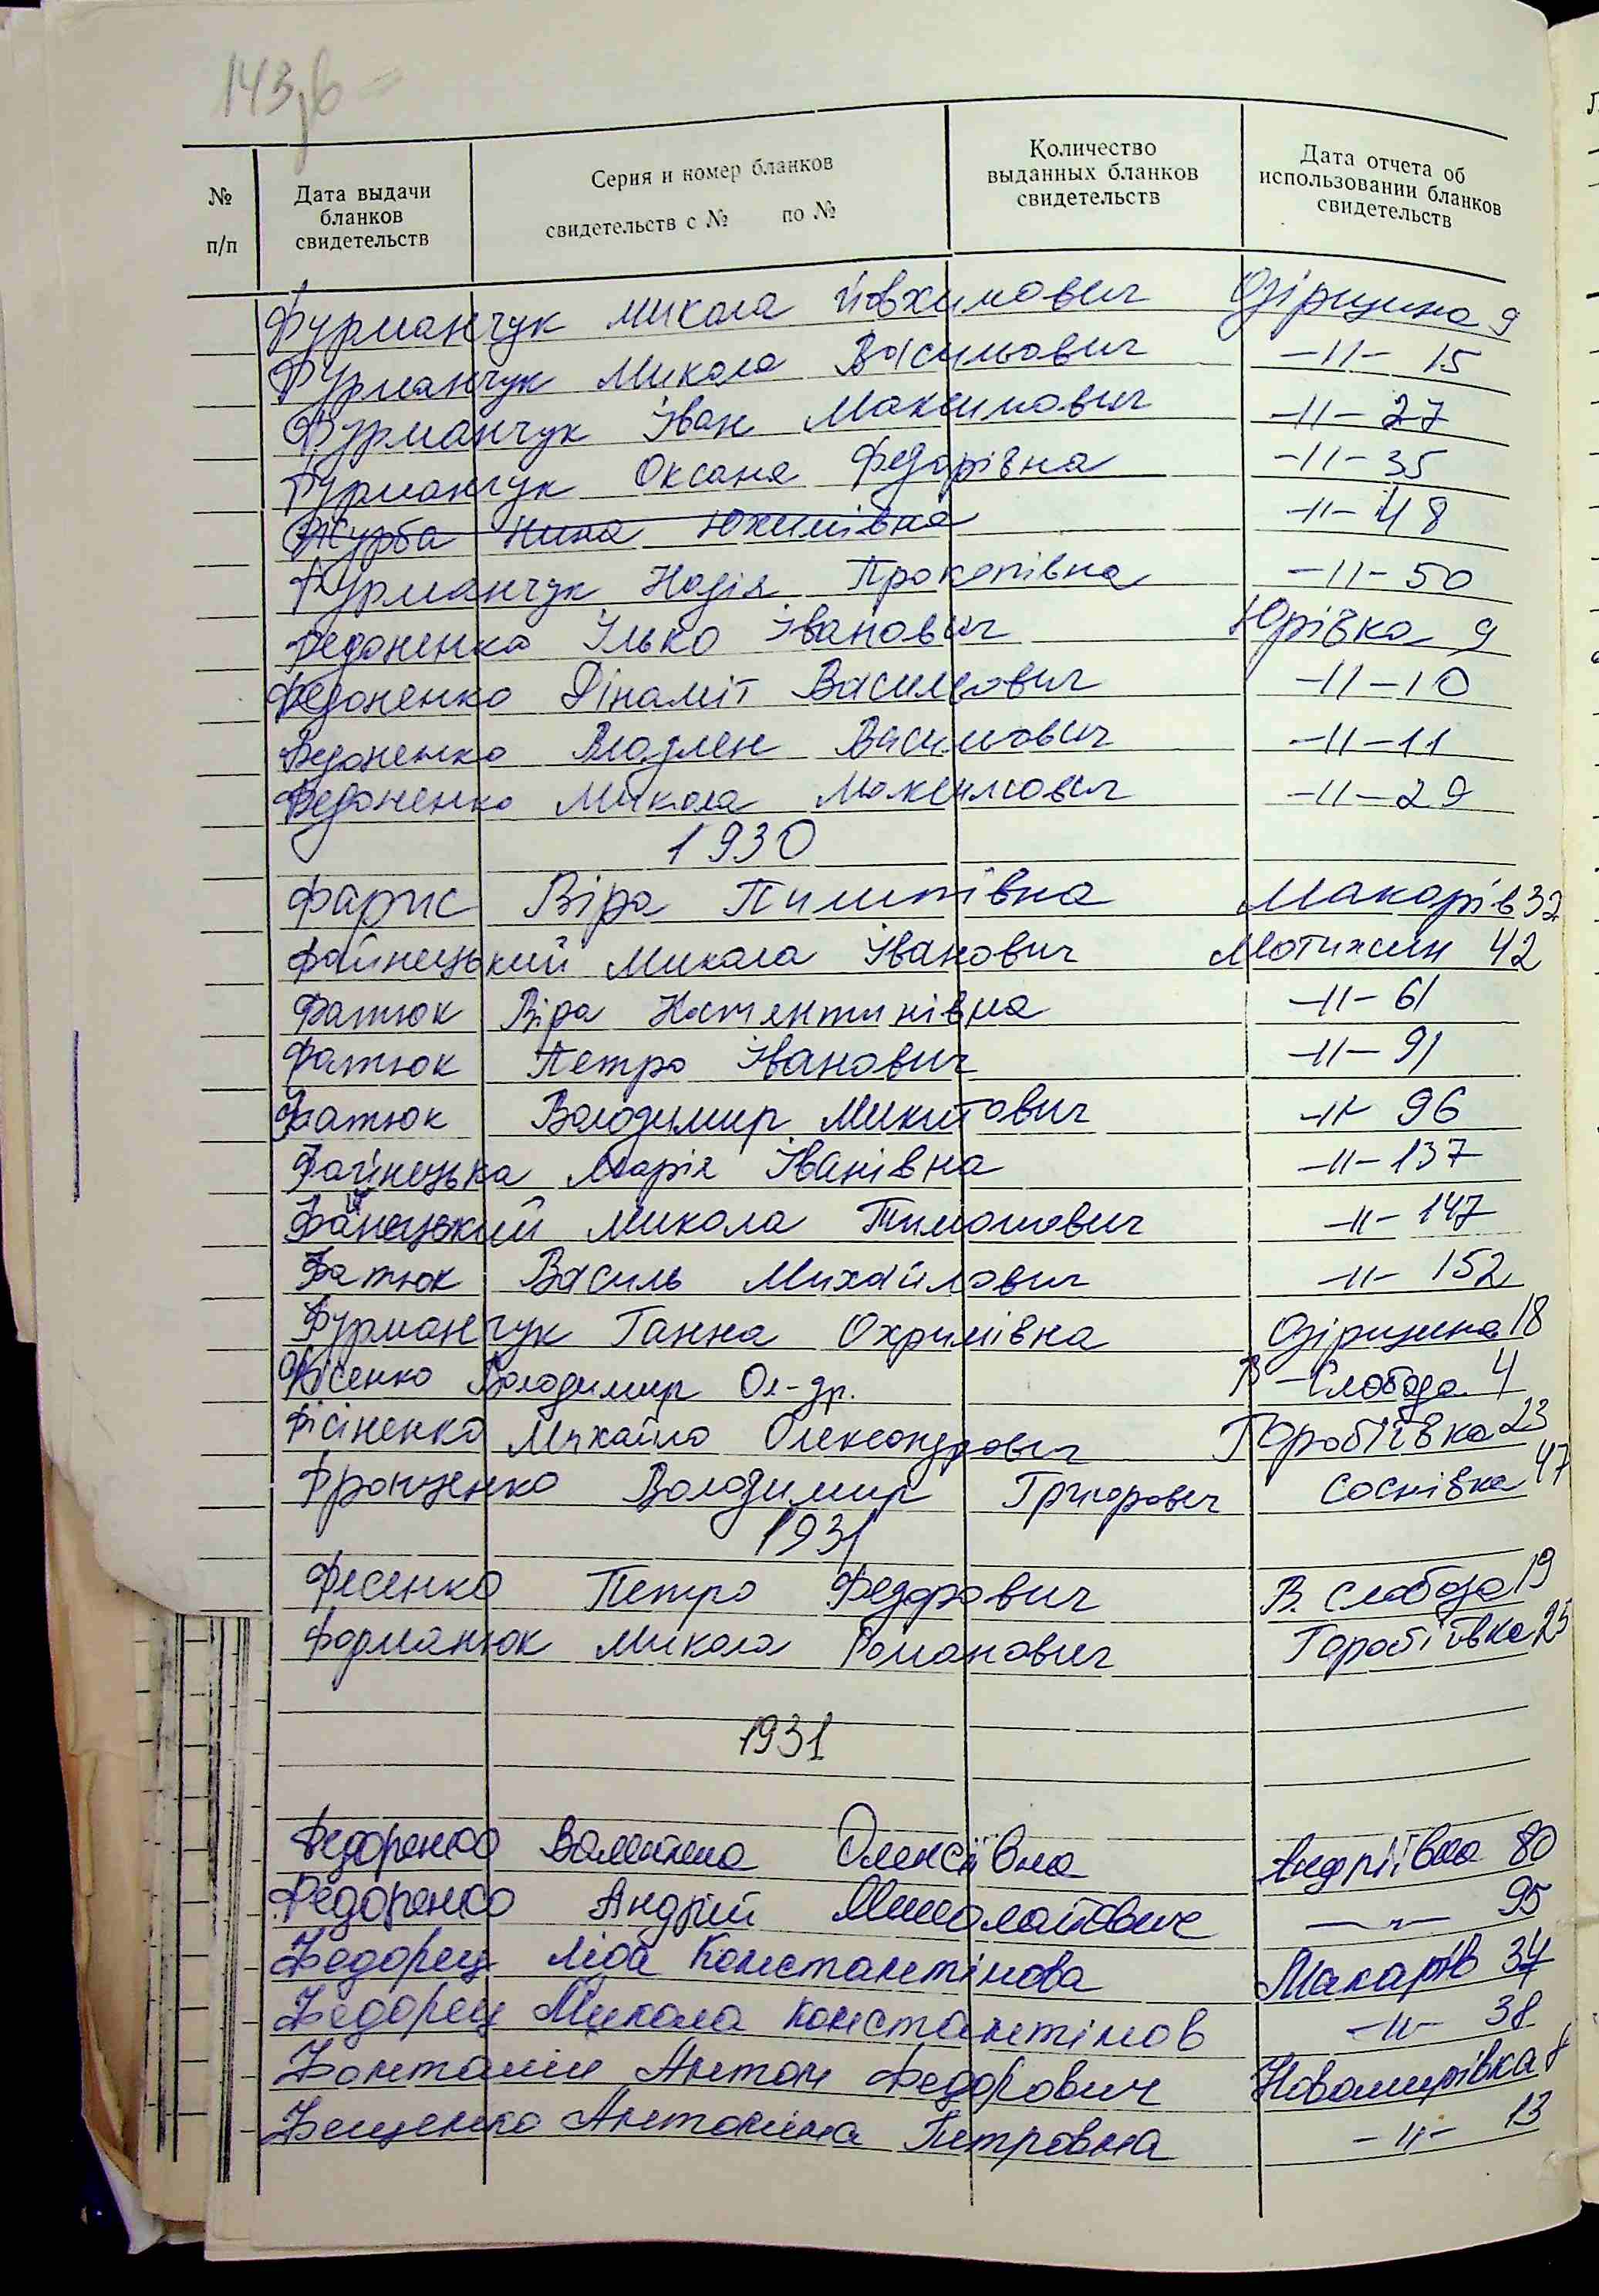 143зв
№ п/п
Дата выдачи бланков свидетельств
Серия и номер бланков свидетельств с № по №
Количество выданных бланков свидетельств
Дата отчета об использовании бланков свидетельств
Фурманчук Микола Йовхимович Озірщина 9
Фурманчук Микола Васильович -11- 15
Фурманчук Іван Максимович -11- 27
Фурманчук Оксана Федорівна -11- 35
Журба Нина Юхимівна -11- 48
Фурманчук Надія Прокопівна -11- 50
Федоненко Ілько Іванович Юрівка 9
Федоненко Дінаміт Васильович -11- 10
Федоненко Владлен Васильович -11- 11
Федоненко Микола Максимович -11- 29
1930
Фарис Віра Пилипівна Макарів 32
Файнецький Микола Іванович Мотижин 42
Фатюк Віра Костянтинівна -11- 61
Фатюк Петро Іванович -11- 91
Фатюк Володимир Микитович -11- 96
Файнецька Марія Іванівна -11- 137
Файнецький Микола Тимошович -11- 147
Фатюк Василь Михайлович -11- 152
Фурманчук Ганна Охримівна Озірщина 18
Фісенко Володимир Ол-др. В-Слобода 4
Фісіненко Михайло Олександрович Горобіївка 23
Фронценко Володимир Григорович Соснівка 47
1931
Фесенко Петро Федорович В. Слобода 19
Форманюк Микола Романович Горобіївка 25
1931
Федоренко Валентина Олексіївна Андріївка 80
Федоренко Андрій Миколайович -"- 95
Федорец Ліда Константінова Макарів 34
Федорец Микола Константінов -11- 38
Антон Федорович Новомирівка 8
Фещенко Антоніна Петровна -11- 13